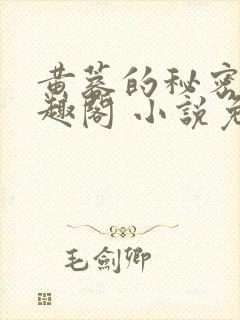 黄蓉的秘密
趣阁 小説免
毛劍卿